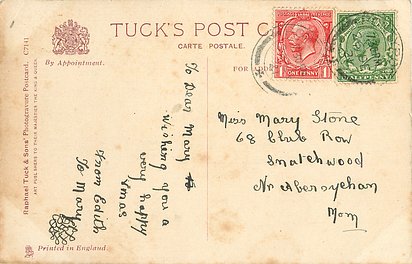 TUCK'S POST C
CARTE POSTALE.
By Appointment.
FOR
Raphael Tuck & Sons' Photogravure Postcard. C7141
ART PUBLISHERS TO THEIR MAJESTIES THE KING & QUEEN.
Printed in England.
To Dear Mary
wishing you a
very happy
Xmas
From Edith
To Mary
ONE PENNY
HALFPENNY
Miss Mary Stone
68 Club Row
Snatchwood
Nr Abersychan
Mom